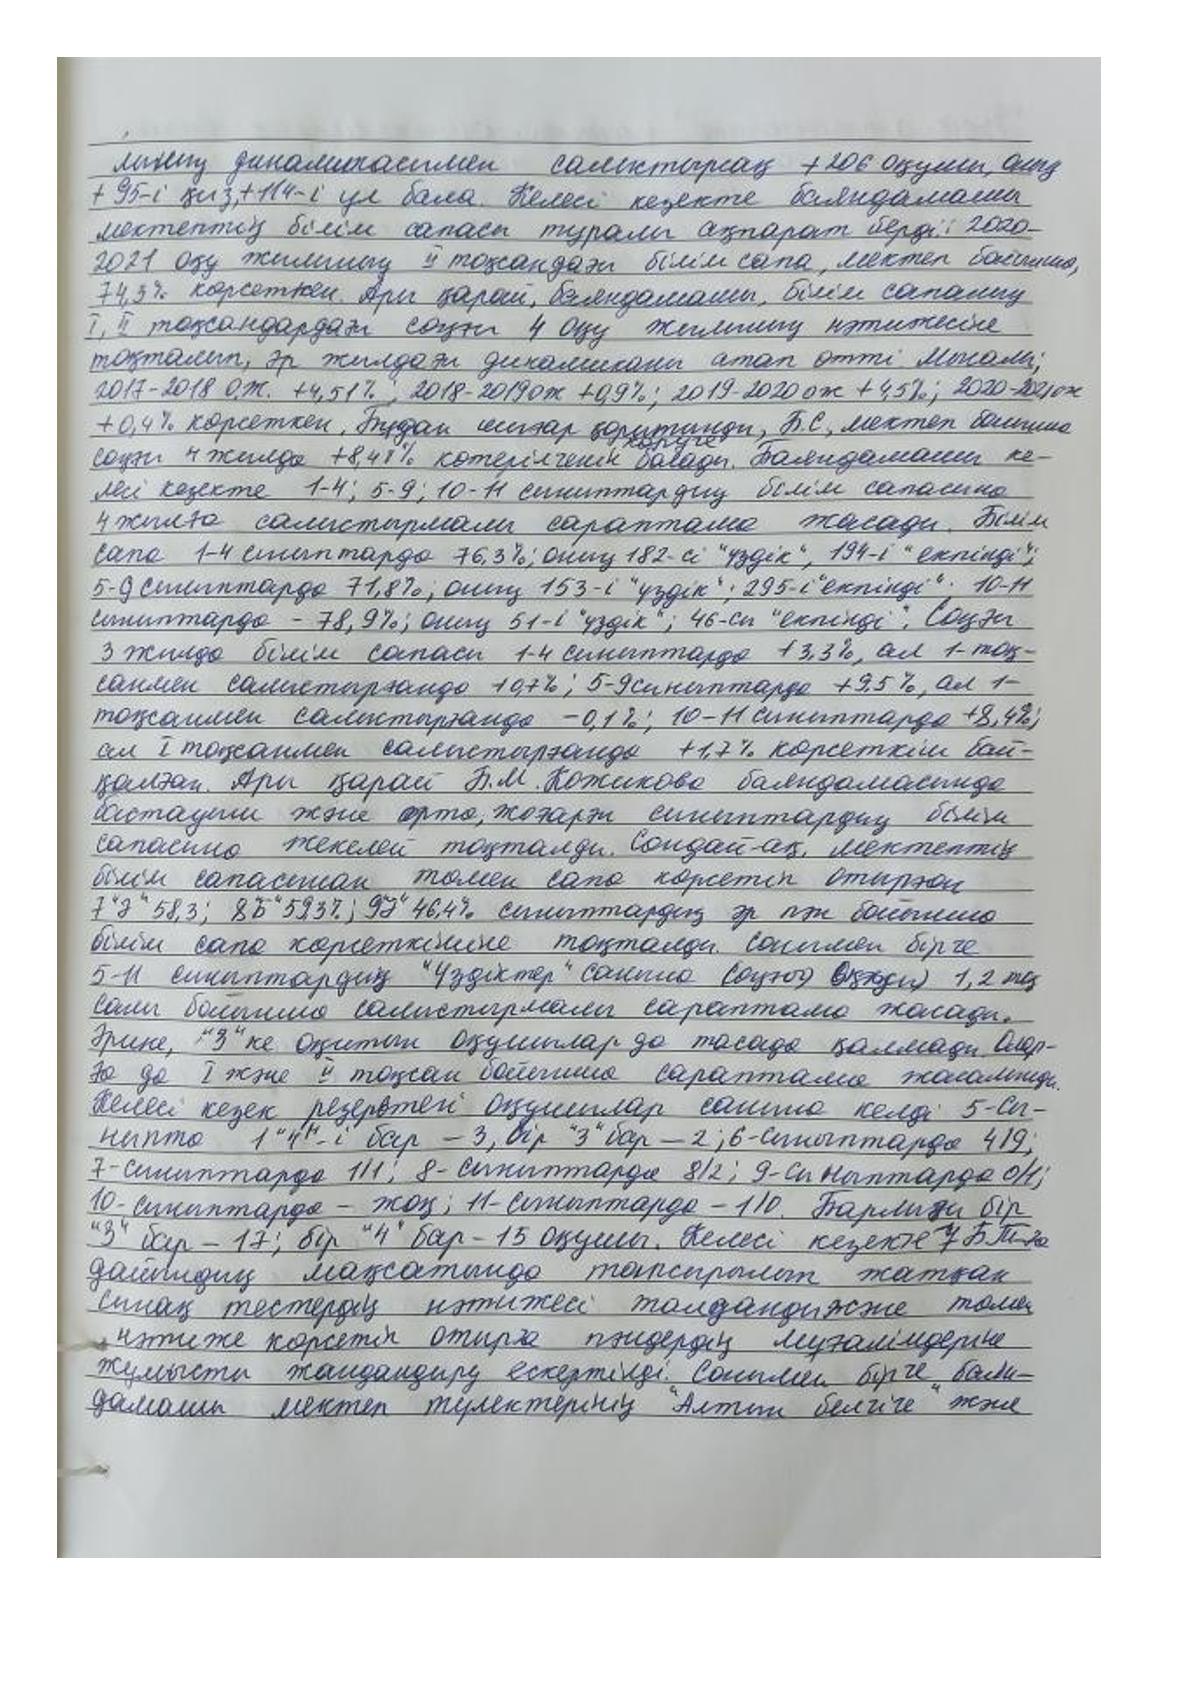 лының динамикасымен салыстырсақ +206 оқушы, оның
+95-і қыз, +114-і ұл бала. Келесі кезекте баяндамашы
мектептің білім сапасы туралы ақпарат берді: 2020-
2021 оқу жылының II тоқсандағы білім сапа, мектеп бойынша,
74,3% көрсеткен. Ары қарай, баяндамашы, білім сапаның
I, II тоқсандардағы соңғы 4 оқу жылының нәтижесіне
тоқталып, әр жылдағы динамиканы атап өтті. Мысалы;
2017-2018 о.ж. +4,51%; 2018-2019 ож +0,9%; 2019-2020 ож +4,5%; 2020-2021 ож
+0,4% көрсеткен. Бұдан шығар қорытынды, Б.С, мектеп бойынша
соңғы 4 жылда +8,48% көтерілгенін көруге болады. Баяндамашы ке-
лесі кезекте 1-4; 5-9; 10-11 сыныптардың білім сапасына
4 жылға салыстырмалы сараптама жасады. Білім
сапа 1-4 сыныптарда 76,3%; оның 182-сі "үздік", 194-і "екпінді";
5-9 сыныптарда 71,8%; оның 153-і "үздік"; 295-і "екпінді". 10-11
сыныптарда - 78,9%; оның 51-і "үздік"; 46-сы "екпінді". Соңғы
3 жылда білім сапасы 1-4 сыныптарда +3,3%, ал 1-тоқ-
санмен салыстырғанда +0,7%; 5-9 сыныптарда +9.5%, ал 1-
тоқсанмен салыстырғанда -0,1%; 10-11 сыныптарда +8,4%;
ал I тоқсанмен салыстырғанда +1,7% көрсеткіш бай-
қалған. Ары қарай Б.М. Кожикова баяндамасында
бастауыш және орта, жоғарғы сыныптардың білім
сапасына жекелей тоқталды. Сондай-ақ, мектептің
білім сапасынан төмен сапа көрсетіп отырған
7"Ә" 58,3; 8"Б" 59,3%; 9"Ә" 46.4% сыныптардың әр пән бойынша
білім сапа көрсеткішіне тоқталды. Сонымен бірге
5-11 сыныптардың "Үздіктер" санына 1,2 тоқ
саны бойынша салыстырмалы сараптама жасады.
Әрине, "3"ке оқитын оқушылар да тасада қалмады. Олар-
ға да I және II тоқсан бойынша сараптама жасалынды.
Келесі кезек резервтегі оқушылар санына келді 5-сы-
ныпта 1 "4"-і бар - 3, бір "3" бар - 2; 6-сыныптарда 4/9;
7-сыныптарда 1/1; 8-сыныптарда 8/2; 9-сыныптарда 0/1;
10-сыныптарда - жоқ; 11-сыныптарда - 1/0. Барлығы бір
"3" бар - 17; бір "4" бар - 15 оқушы. Келесі кезекте ҰБТ-ға
дайындық мақсатында тапсырылып жатқан
сынақ тестердің нәтижесі талданды және төмен
нәтиже көрсетіп отырға пәндердің мұғалімдеріне
жұмысты жандандыру ескертілді. Сонымен бірге баян-
дамашы мектеп түлектерінің "Алтын белгіге" және